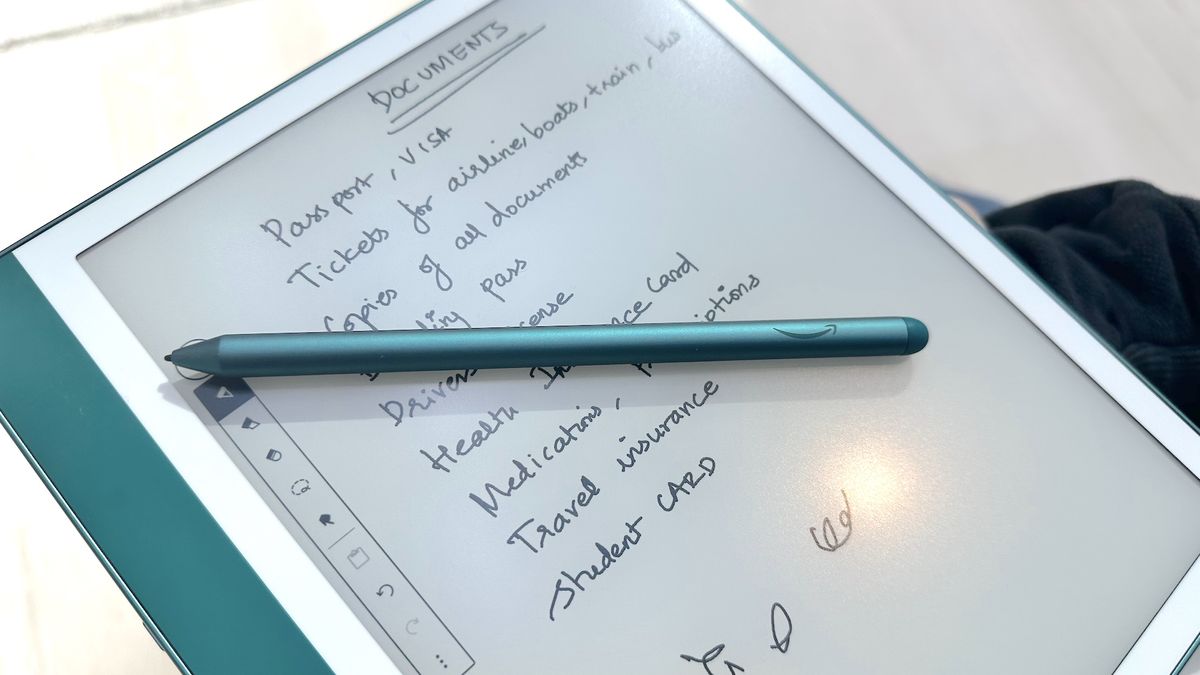 DOCUMENTS
Passport, VISA
Tickets for airline, boats, train, bus
Copies of all documents
pass
Drivers
Health Card
Medications,
Travel insurance
Student CARD